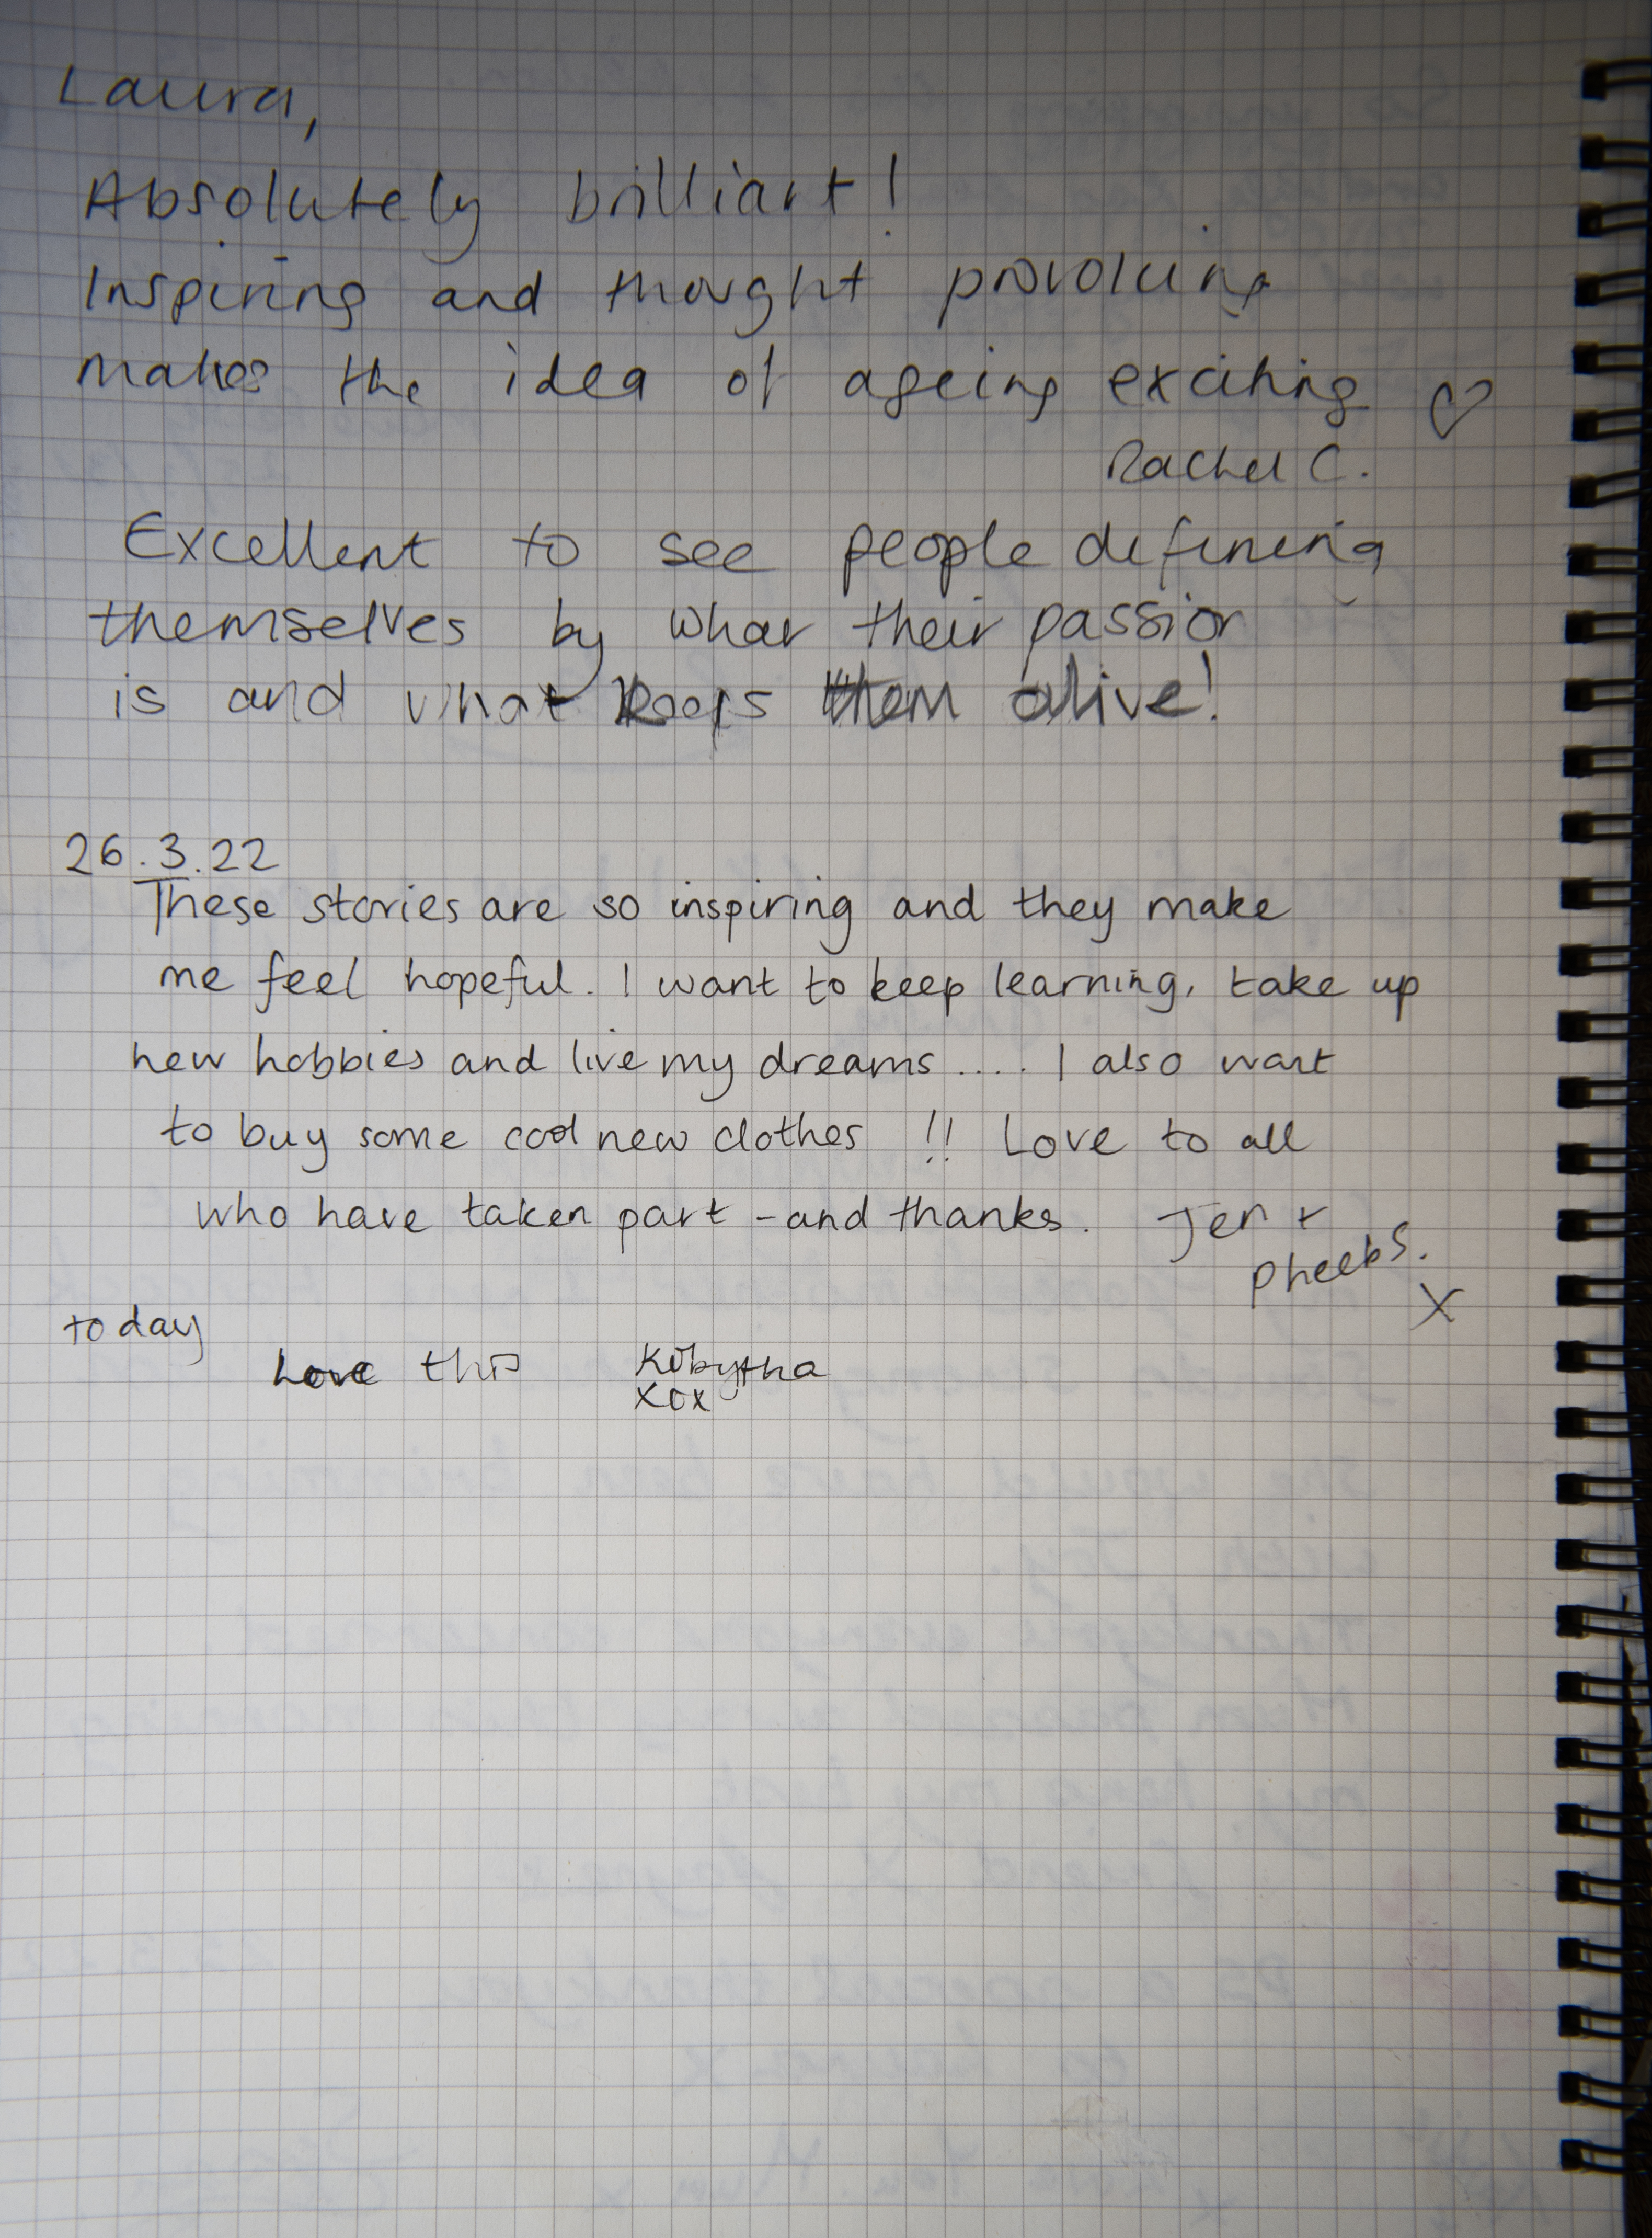 Laura,
Absolutely brilliant!
Inspiring and thought provoking
makes the idea of ageing exciting ♡
Rachel C.
Excellent to see people defining
themselves by what their passion
is and what keeps them alive!
26.3.22
These stories are so inspiring and they make
me feel hopeful. I want to keep learning, take up
new hobbies and live my dreams.... I also want
to buy some cool new clothes !! Love to all
who have taken part - and thanks. Jen +
Pheebs.
X
today
Love this
xox